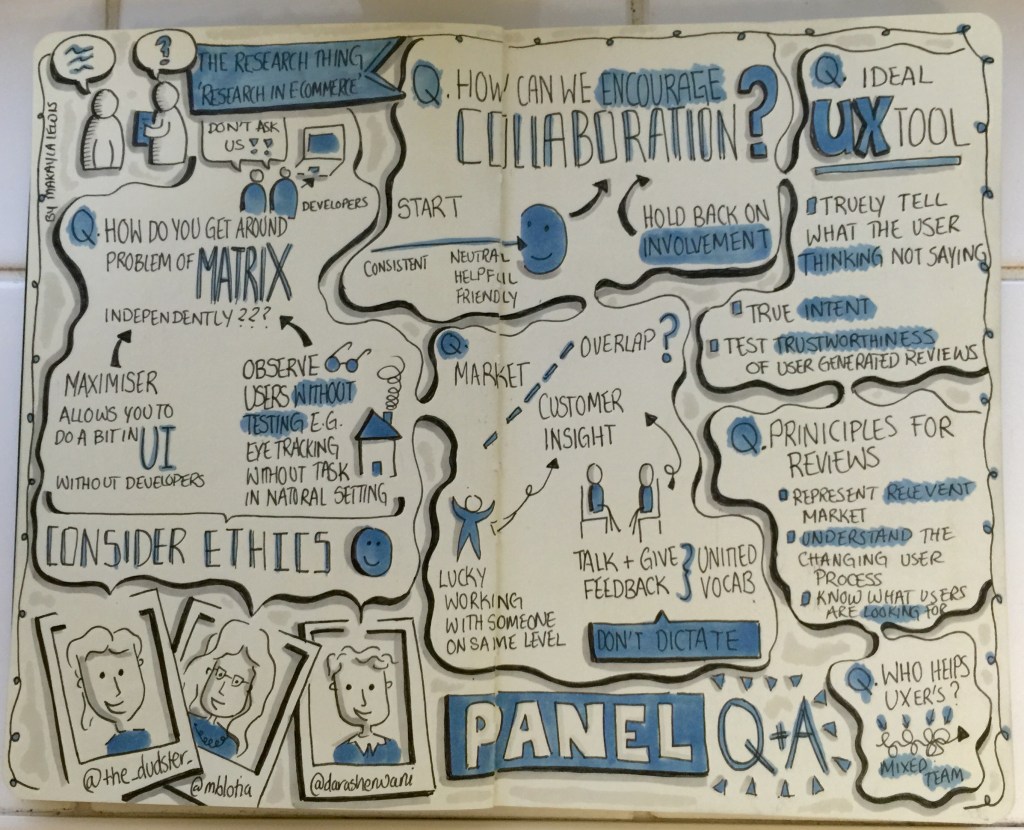 BY MAKAYLA LEWIS
?
THE RESEARCH THING
'RESEARCH IN ECOMMERCE'
DON'T ASK
US !!
DEVELOPERS
Q. HOW DO YOU GET AROUND
PROBLEM OF MATRIX
INDEPENDENTLY ???
MAXIMISER
ALLOWS YOU TO
DO A BIT IN UI
WITHOUT DEVELOPERS
OBSERVE
USERS WITHOUT
TESTING E.G.
EYE TRACKING
WITHOUT TASK
IN NATURAL SETTING
CONSIDER ETHICS
@the_dudster_
@mblotia
@darasherwani
Q. HOW CAN WE ENCOURAGE
COLLABORATION?
START
CONSISTENT
NEUTRAL
HELPFUL
FRIENDLY
HOLD BACK ON
INVOLVEMENT
Q.
MARKET
OVERLAP?
CUSTOMER
INSIGHT
LUCKY
WORKING
WITH SOMEONE
ON SAME LEVEL
TALK + GIVE } UNITED
FEEDBACK VOCAB
DON'T DICTATE
PANEL Q+A
Q. IDEAL
UX TOOL
TRUELY TELL
WHAT THE USER
THINKING NOT SAYING
TRUE INTENT
TEST TRUSTWORTHINESS
OF USER GENERATED REVIEWS
Q. PRINICIPLES FOR
REVIEWS
REPRESENT RELEVENT
MARKET
UNDERSTAND THE
CHANGING USER
PROCESS
KNOW WHAT USERS
ARE LOOKING FOR
Q. WHO HELPS
UXER'S?
MIXED
TEAM